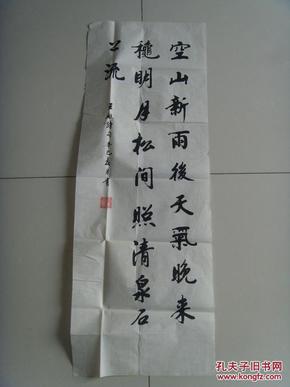 空山新雨後天氣晚来
穐明月松间照清泉石
上流
孔夫子旧书网